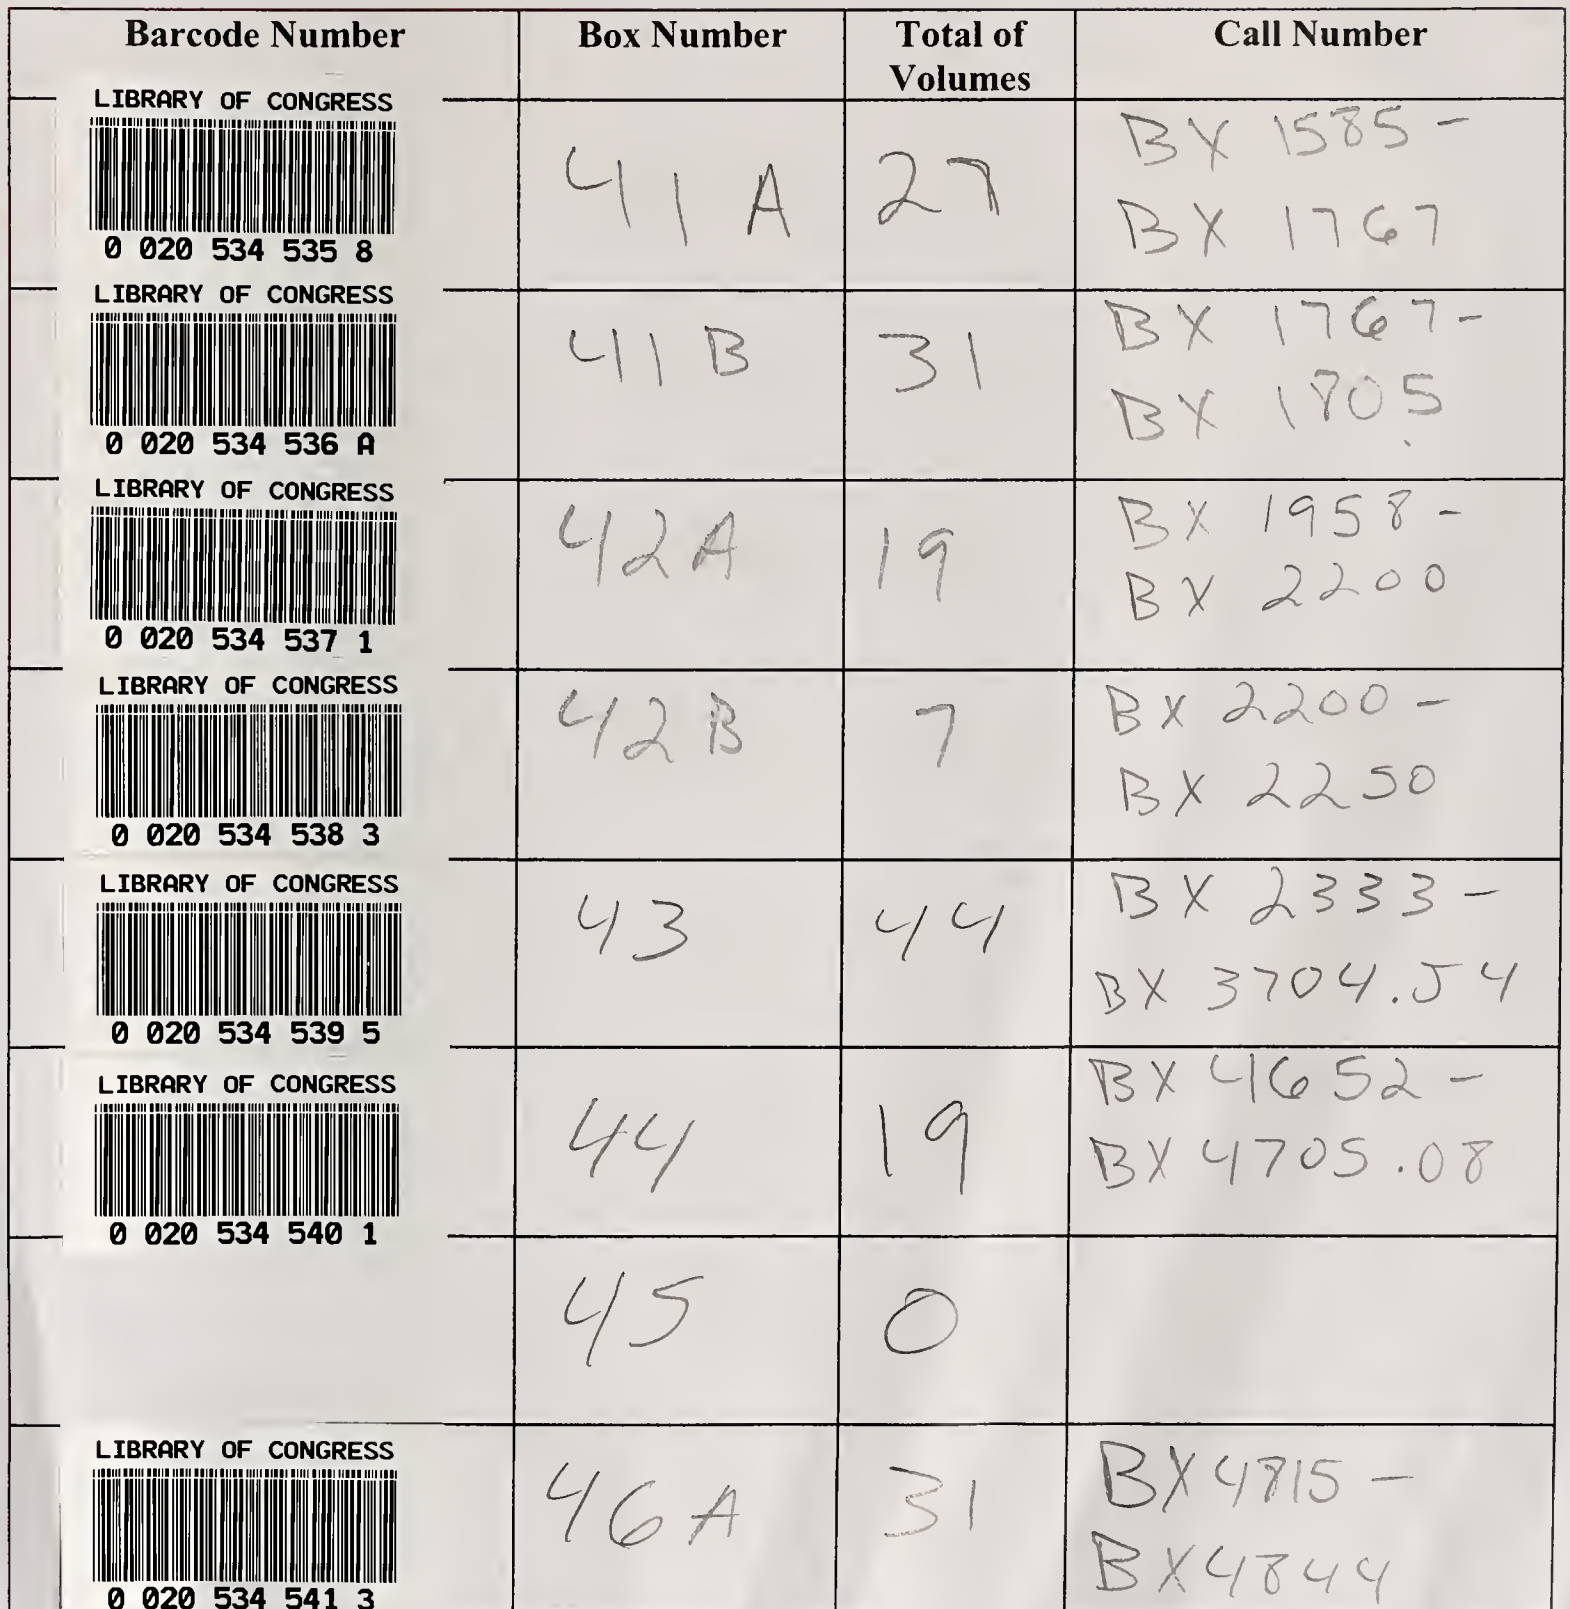 Barcode Number Box Number Total of Volumes Call Number
LIBRARY OF CONGRESS
0 020 534 535 8
41 A 27 BX 1585 -
BX 1767
LIBRARY OF CONGRESS
0 020 534 536 A
41 B 31 BX 1767 -
BX 1805
LIBRARY OF CONGRESS
0 020 534 537 1
42A 19 BX 1958 -
BX 2200
LIBRARY OF CONGRESS
0 020 534 538 3
42B 7 BX 2200 -
BX 2250
LIBRARY OF CONGRESS
0 020 534 539 5
43 44 BX 2333 -
BX 3704.J4
LIBRARY OF CONGRESS
0 020 534 540 1
44 19 BX 4652 -
BX 4705.08
45 0
LIBRARY OF CONGRESS
0 020 534 541 3
46A 31 BX4815 -
BX4844